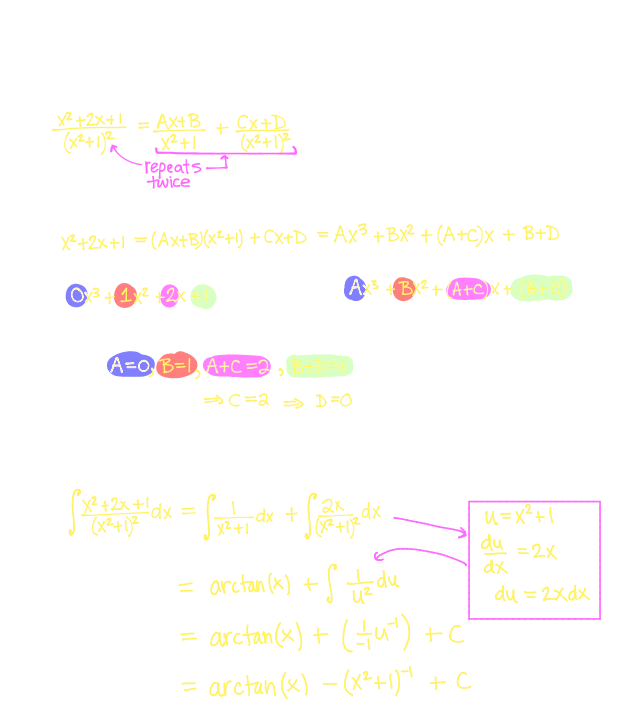 x²+2x+1/(x²+1)² = Ax+B/x²+1 + Cx+D/(x²+1)²
repeats
twice
x²+2x+1 = (Ax+B)(x²+1) + Cx+D = Ax³ + Bx² + (A+C)x + B+D
0x³ + 1x² + 2x +1
Ax³ + Bx² + (A+C)x +
A=0, B=1, A+C=2,
⇒ C=2 ⇒ D=0
∫ x²+2x+1/(x²+1)² dx = ∫ 1/x²+1 dx + ∫ 2x/(x²+1)² dx
u = x²+1
du/dx = 2x
du = 2xdx
= arctan(x) + ∫ 1/u² du
= arctan(x) + (1/-1 u⁻¹) + C
= arctan(x) - (x²+1)⁻¹ + C